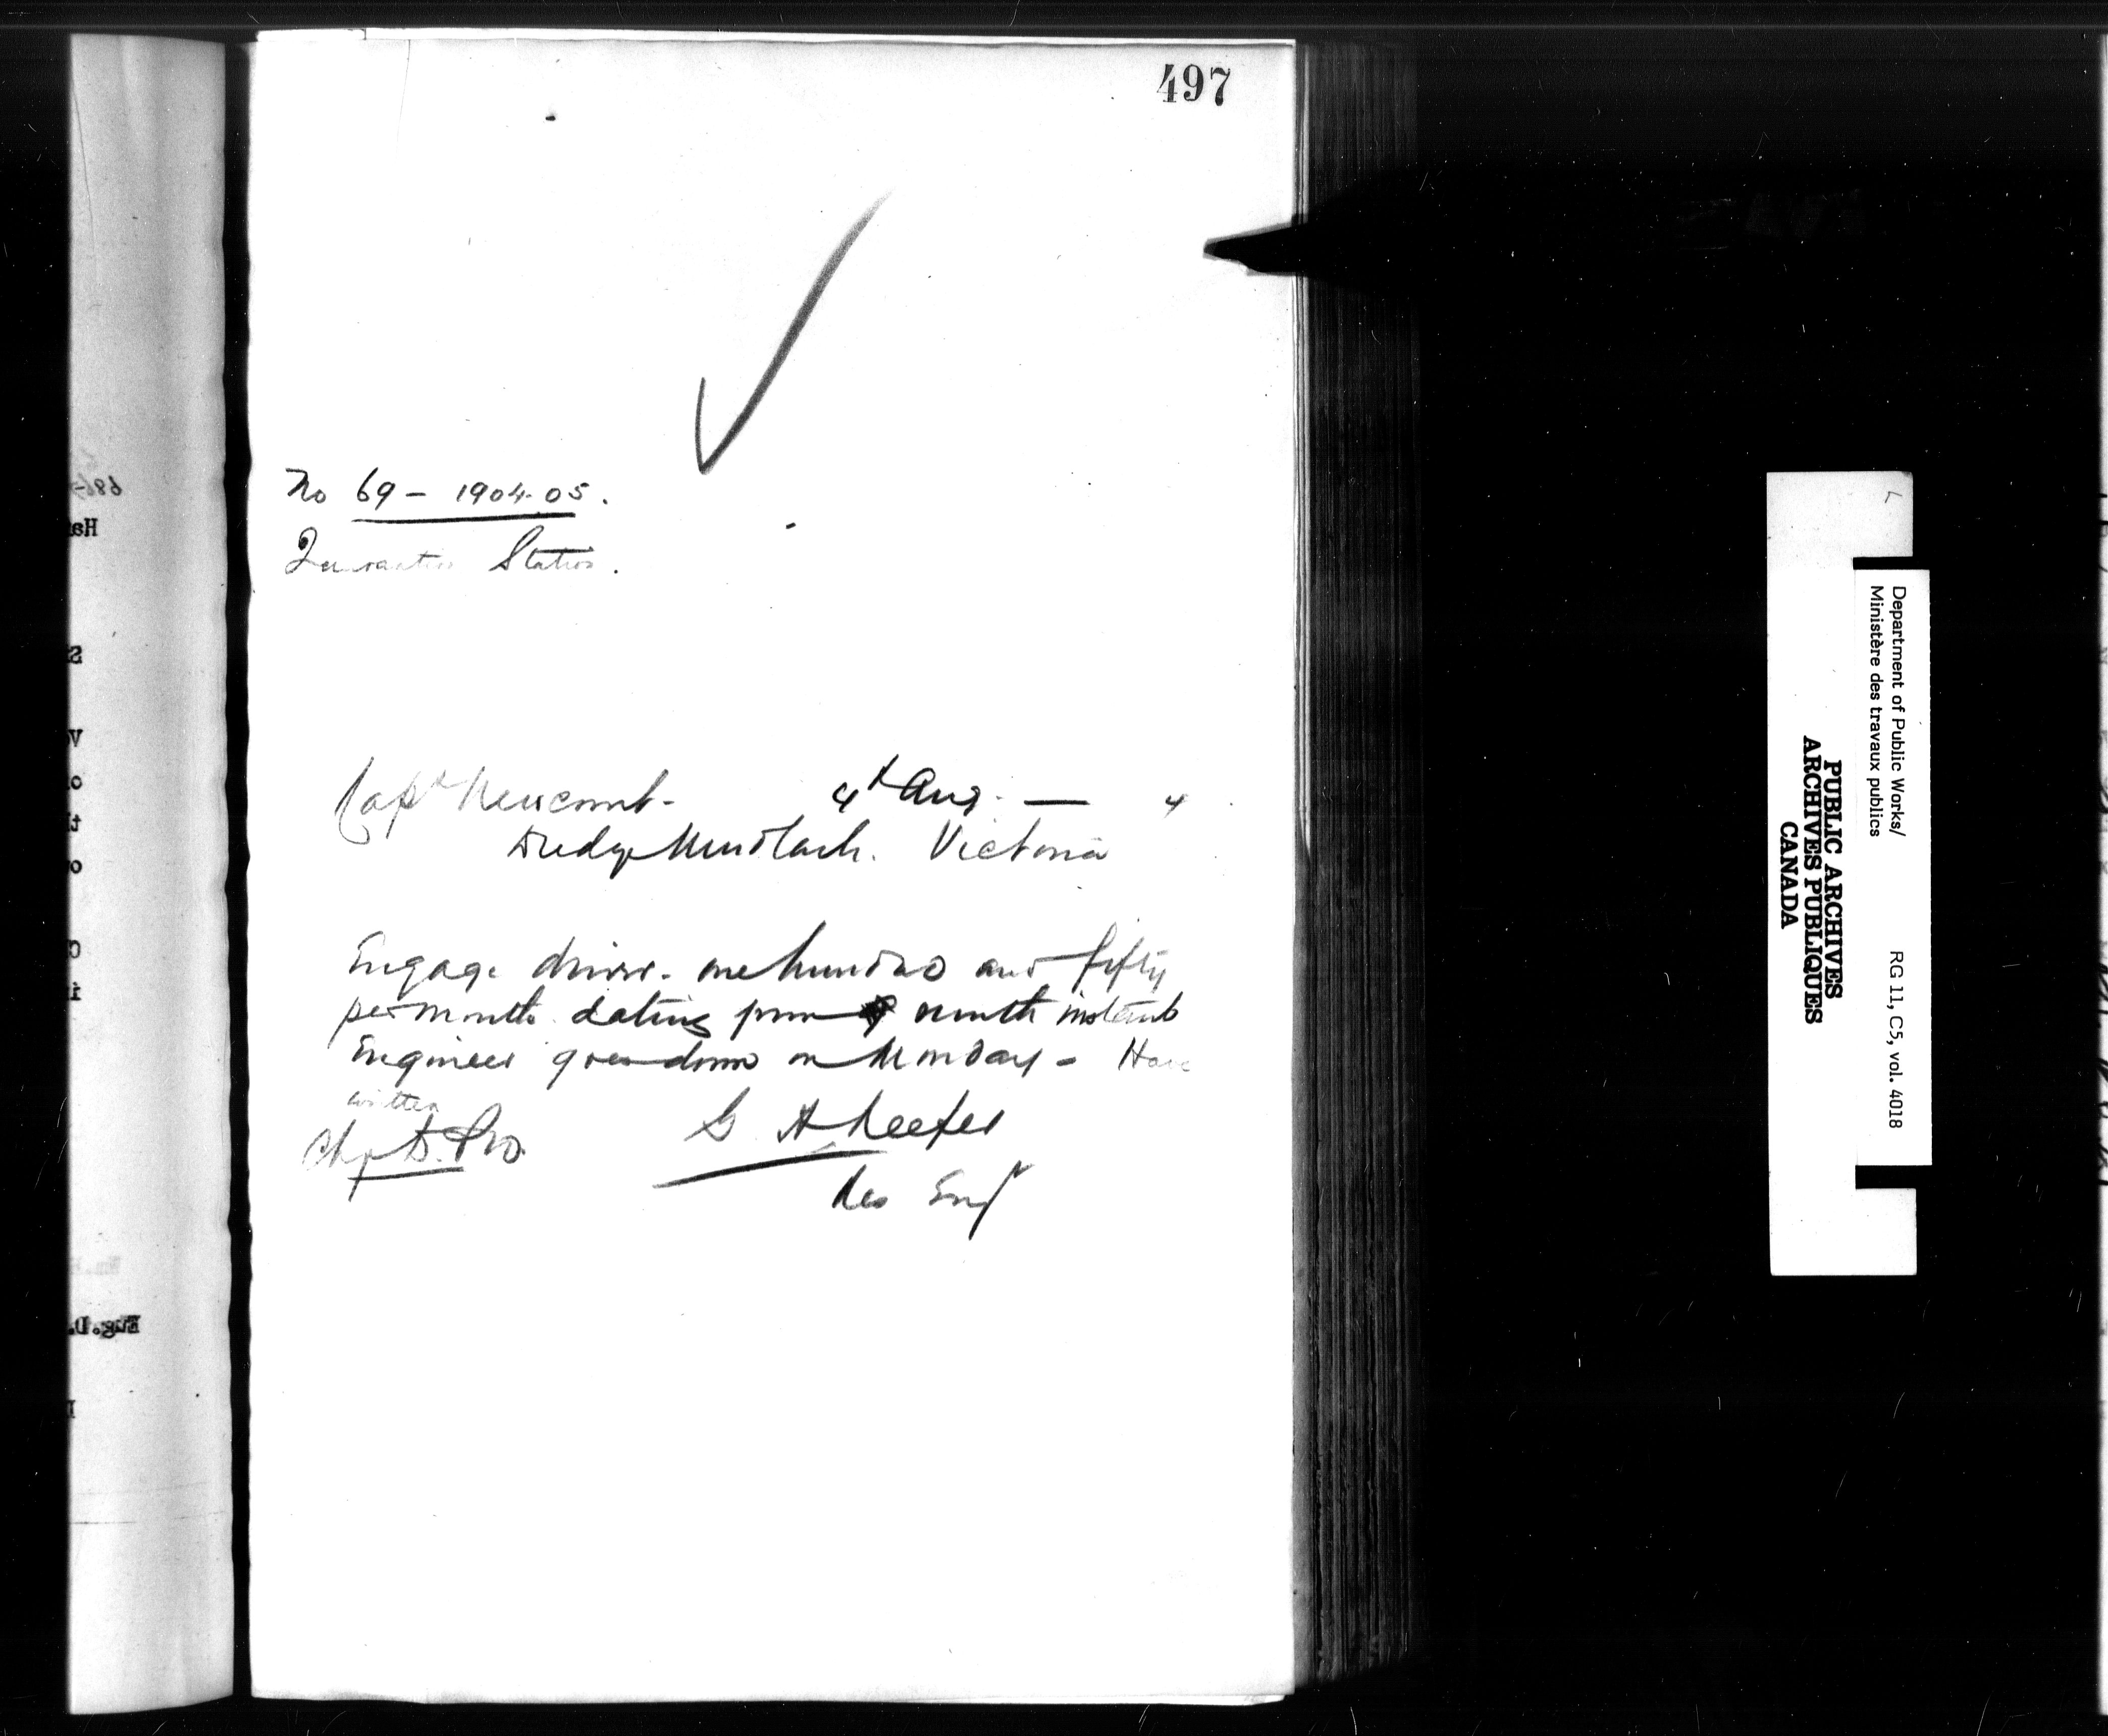 497
No 69 - 1904-05.
Quarantine Station.
Capt Newcomb - 4th Aug. — 4
Dredge Mudlark. Victoria
Engage diver - one hundred and fifty
per month dating from ninth instant
Engineer goes down on Monday - Have
written
Chg D.P.W. G A Keefer
Res Engr
686
Ha
Eng.D.
Department of Public Works/
Ministère des travaux publics
RG 11, C5, vol. 4018
PUBLIC ARCHIVES
ARCHIVES PUBLIQUES
CANADA